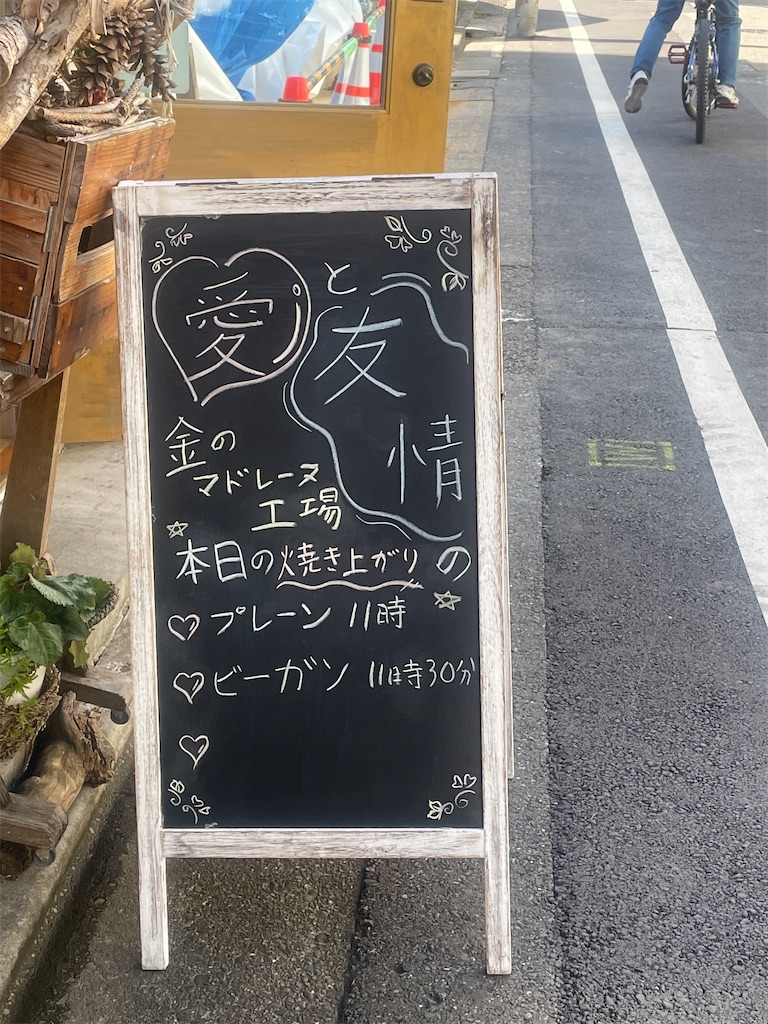 愛と友情
金の
マドレーヌ
工場
本日の焼き上がりの
プレーン 11時
ビーガン 11時30分